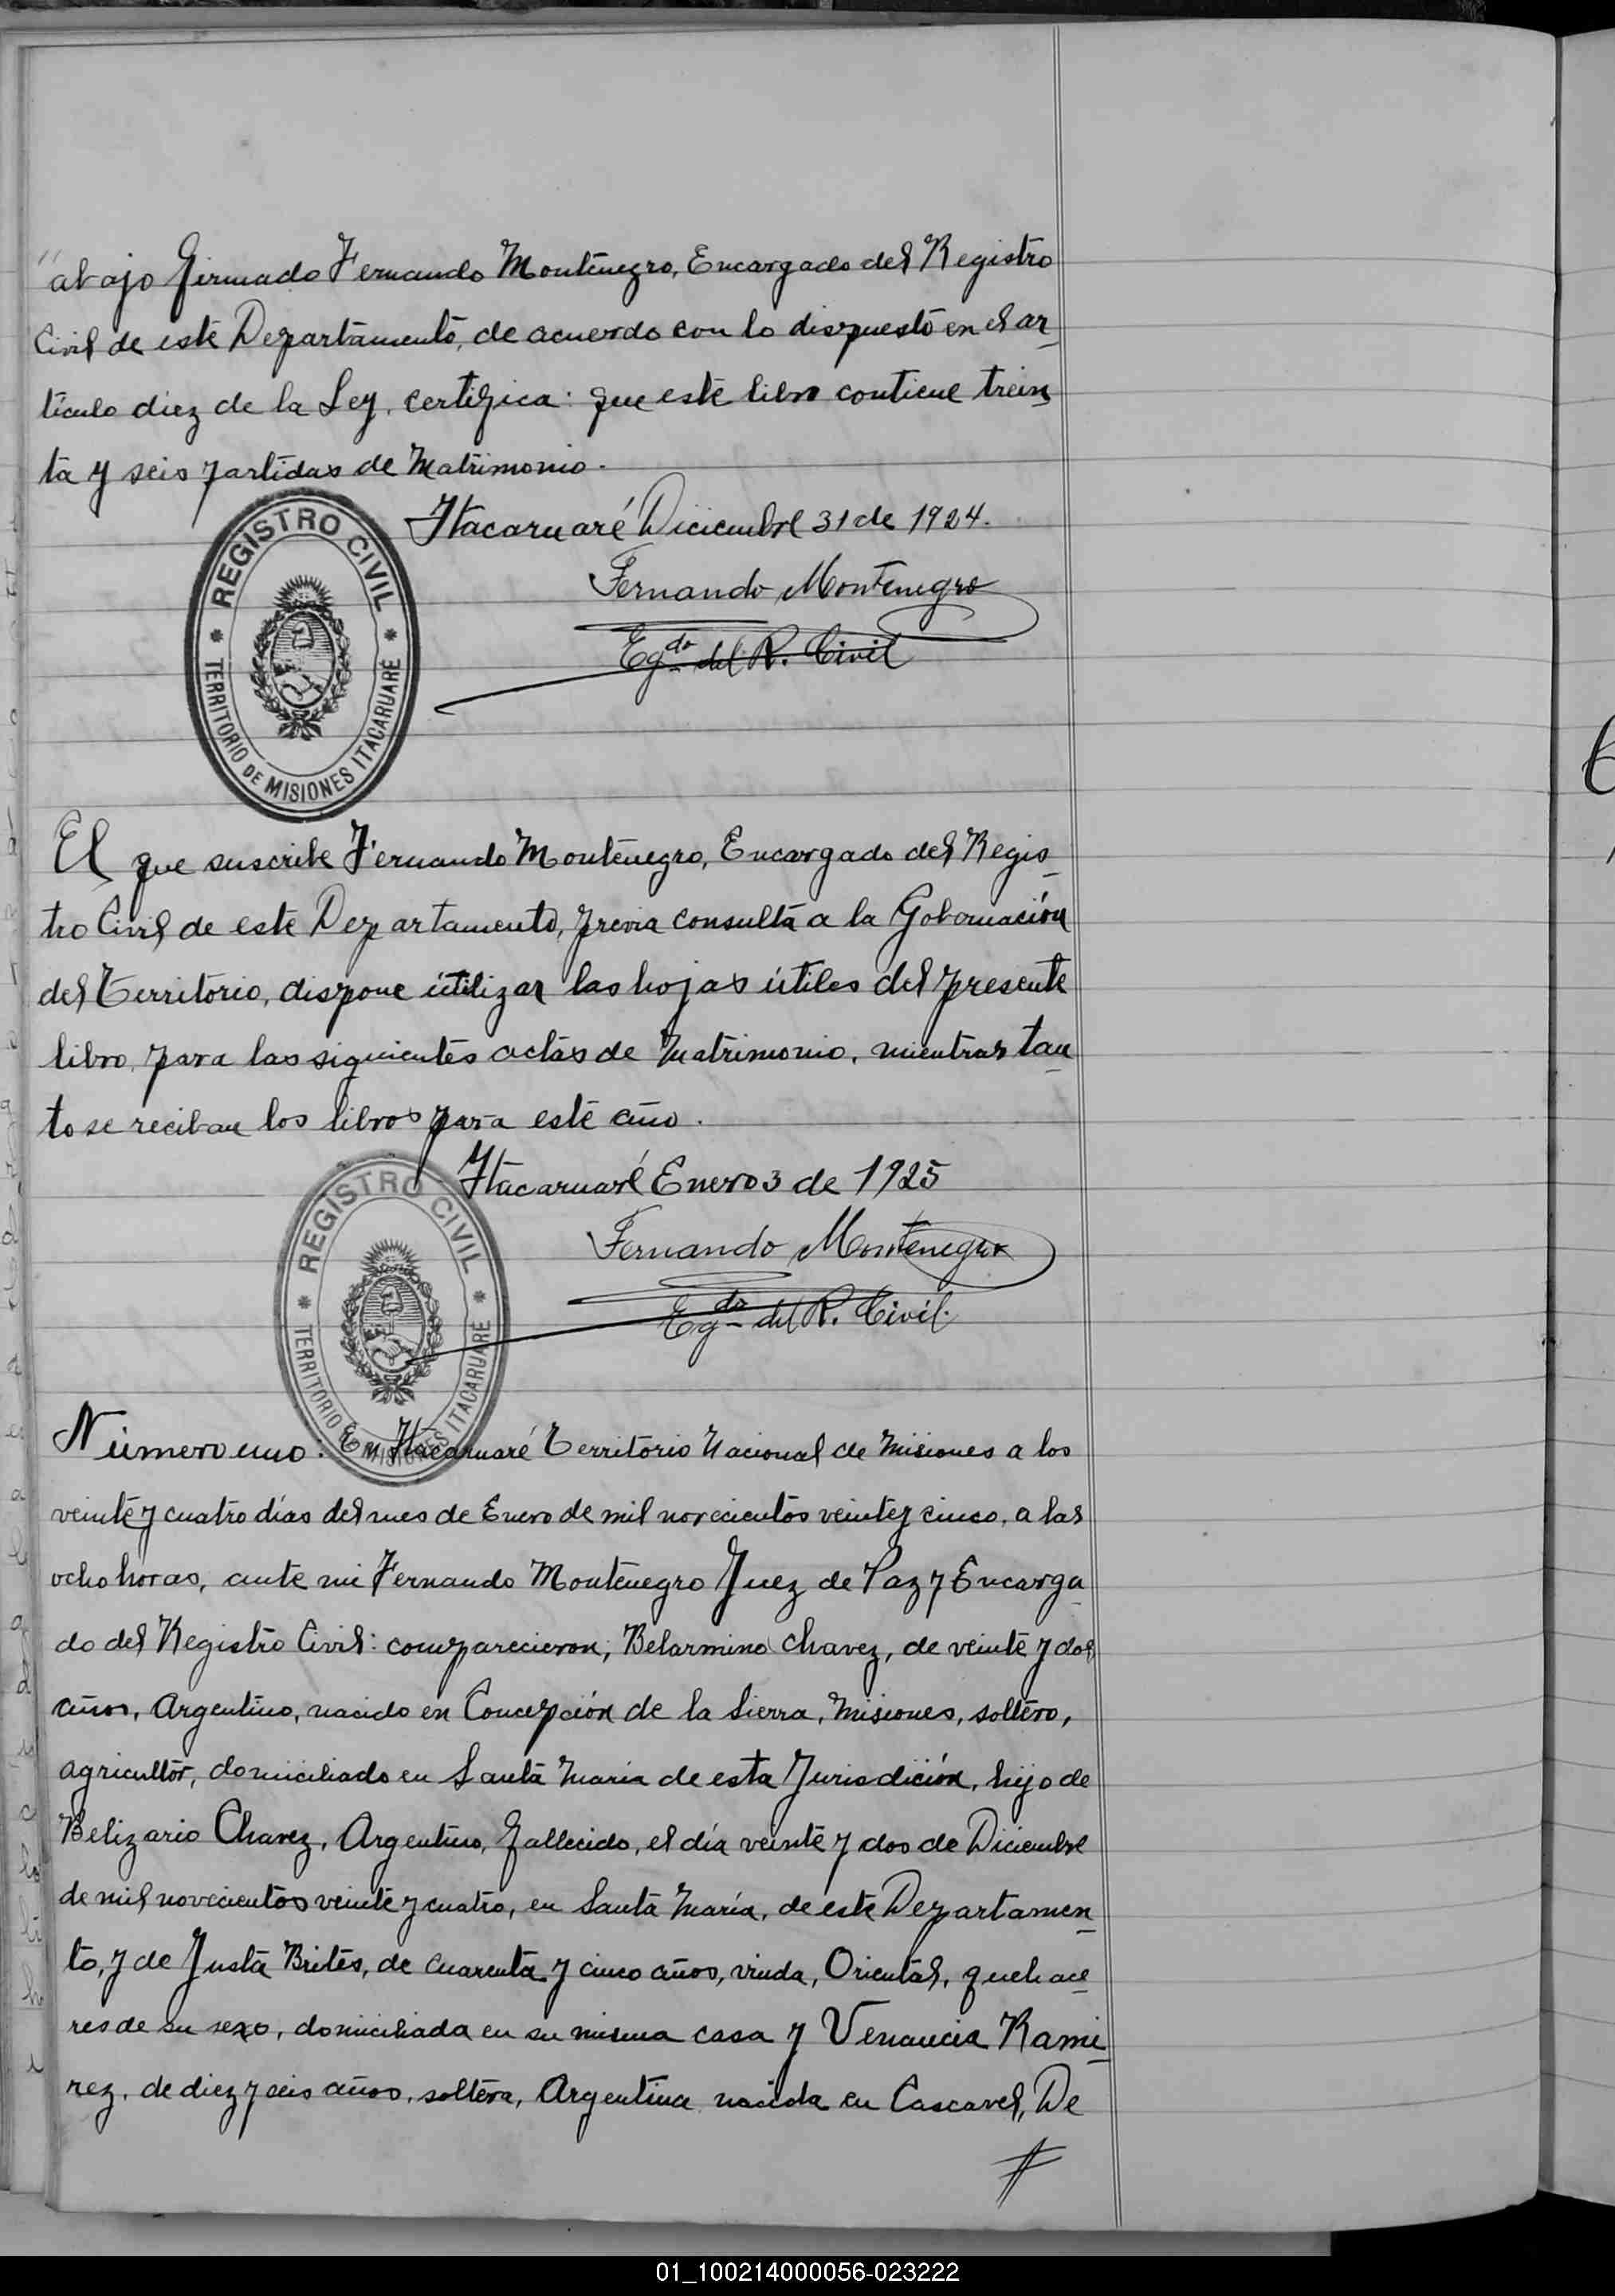 "abajo firmado Fernando Montenegro, Encargado del Registro
Civil de este Departamento, de acuerdo con lo dispuesto en el ar_
tículo diez de la Ley, certifica: que este libro contiene trein_
ta y seis partidas de Matrimonio.
Itacaruaré Diciembre 31 de 1924.
Fernando Montenegro
Egdo del R. Civil
REGISTRO CIVIL
TERRITORIO DE MISIONES ITACARUARÉ
El que suscribe Fernando Montenegro, Encargado del Regis_
tro Civil de este Departamento, previa consulta a la Gobernación
del Territorio, dispone útilizar las hojas útiles del presente
libro, para las siguientes actas de Matrimonio, mientras tan_
to se reciban los libros para este año.
Itacaruaré Enero 3 de 1925
Fernando Montenegro
Egdo del R. Civil.
REGISTRO CIVIL
TERRITORIO DE MISIONES ITACARUARÉ
Número uno: En Itacaruaré Territorio Nacional de Misiones a los
veinte y cuatro días del mes de Enero de mil novecientos veinte y cinco, a las
ocho horas, ante mi Fernando Montenegro Juez de Paz y Encarga_
do del Registro Civil: comparecieron; Belarmino Chavez, de veinte y dos
años, Argentino, nacido en Concepción de la Sierra, Misiones, soltero,
agricultor, domiciliado en Santa Maria de esta Jurisdición, hijo de
Belizario Chavez, Argentino, fallecido, el día veinte y dos de Diciembre
de mil novecientos veinte y cuatro, en Santa María, de este Departamen_
to, y de Justa Brites, de cuarenta y cinco años, viuda, Oriental, quehace_
res de su sexo, domiciliada en su misma casa y Venancia Rami_
rez, de diez y seis años, soltera, Argentina nacida en Cascavel, De
#
01_100214000056-023222